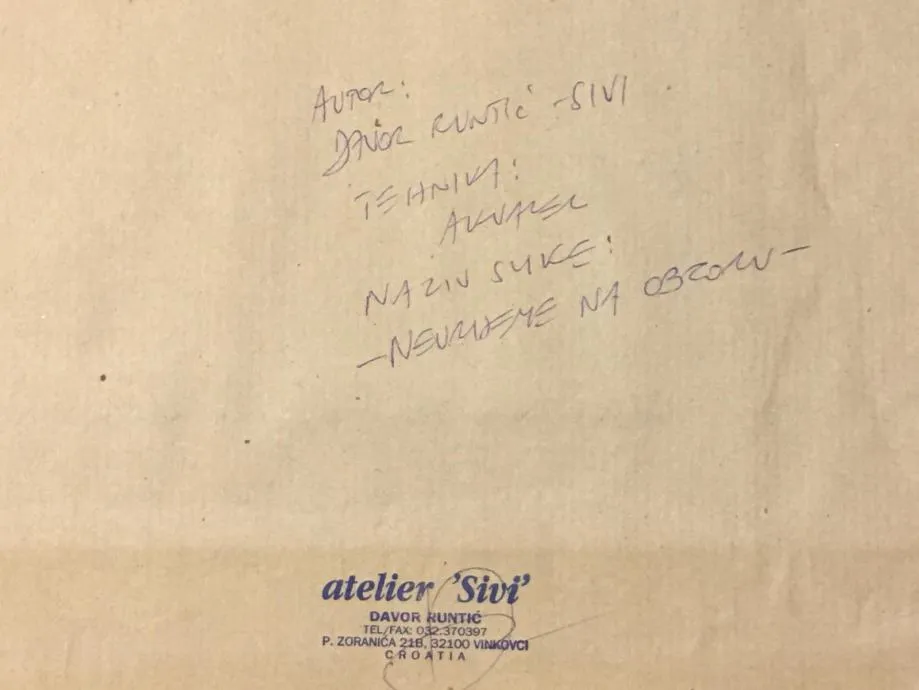 AUTOR:
DAVOR RUNTIĆ - SIVI
TEHNIKA:
AKVAREL
NAZIV SLIKE:
- NEVRIJEME NA OBZORU -
atelier 'Sivi'
DAVOR RUNTIĆ
TEL/FAX: 032.370397
P. ZORANIĆA 21B, 32100 VINKOVCI
CROATIA